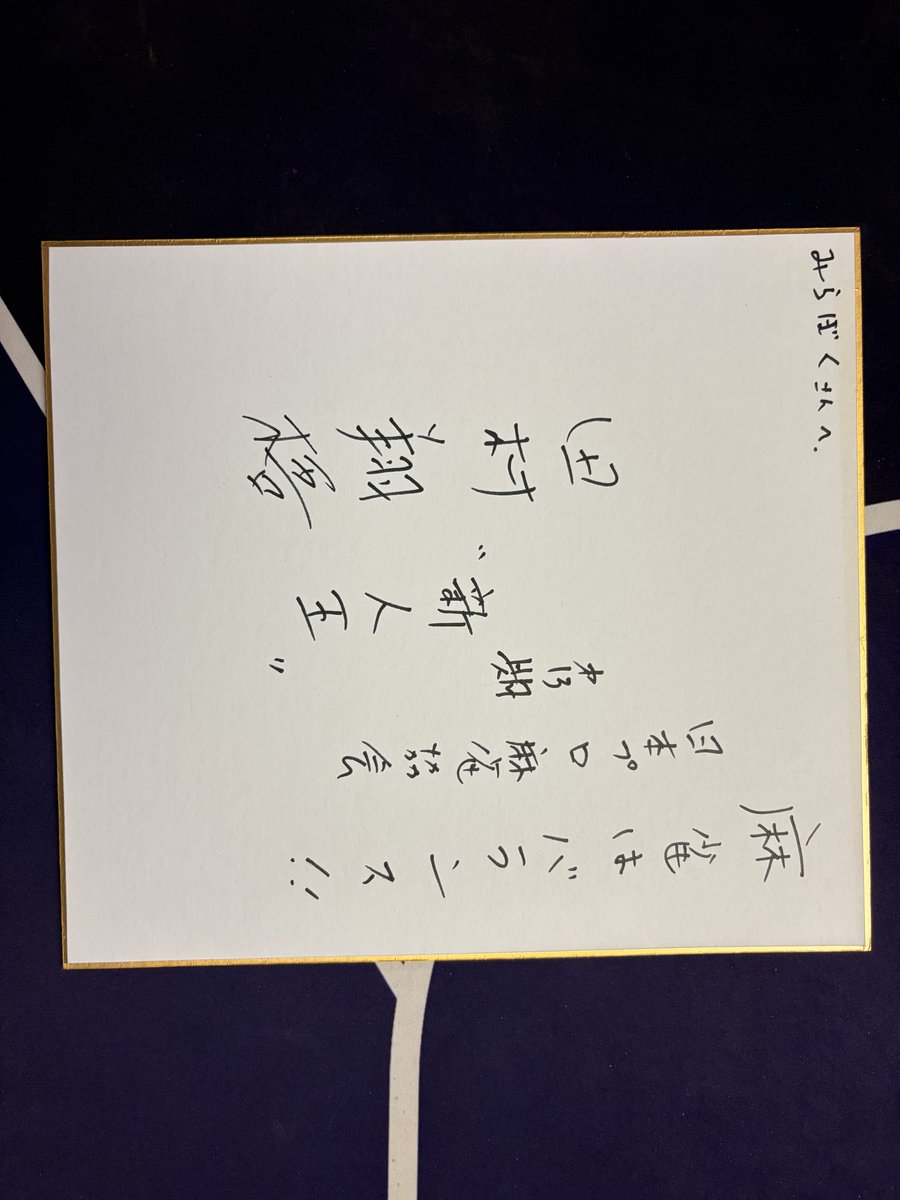 みらぼくさんへ.
麻雀はバランス!!
日本プロ麻雀協会
才13期
"新人王"
田村翔